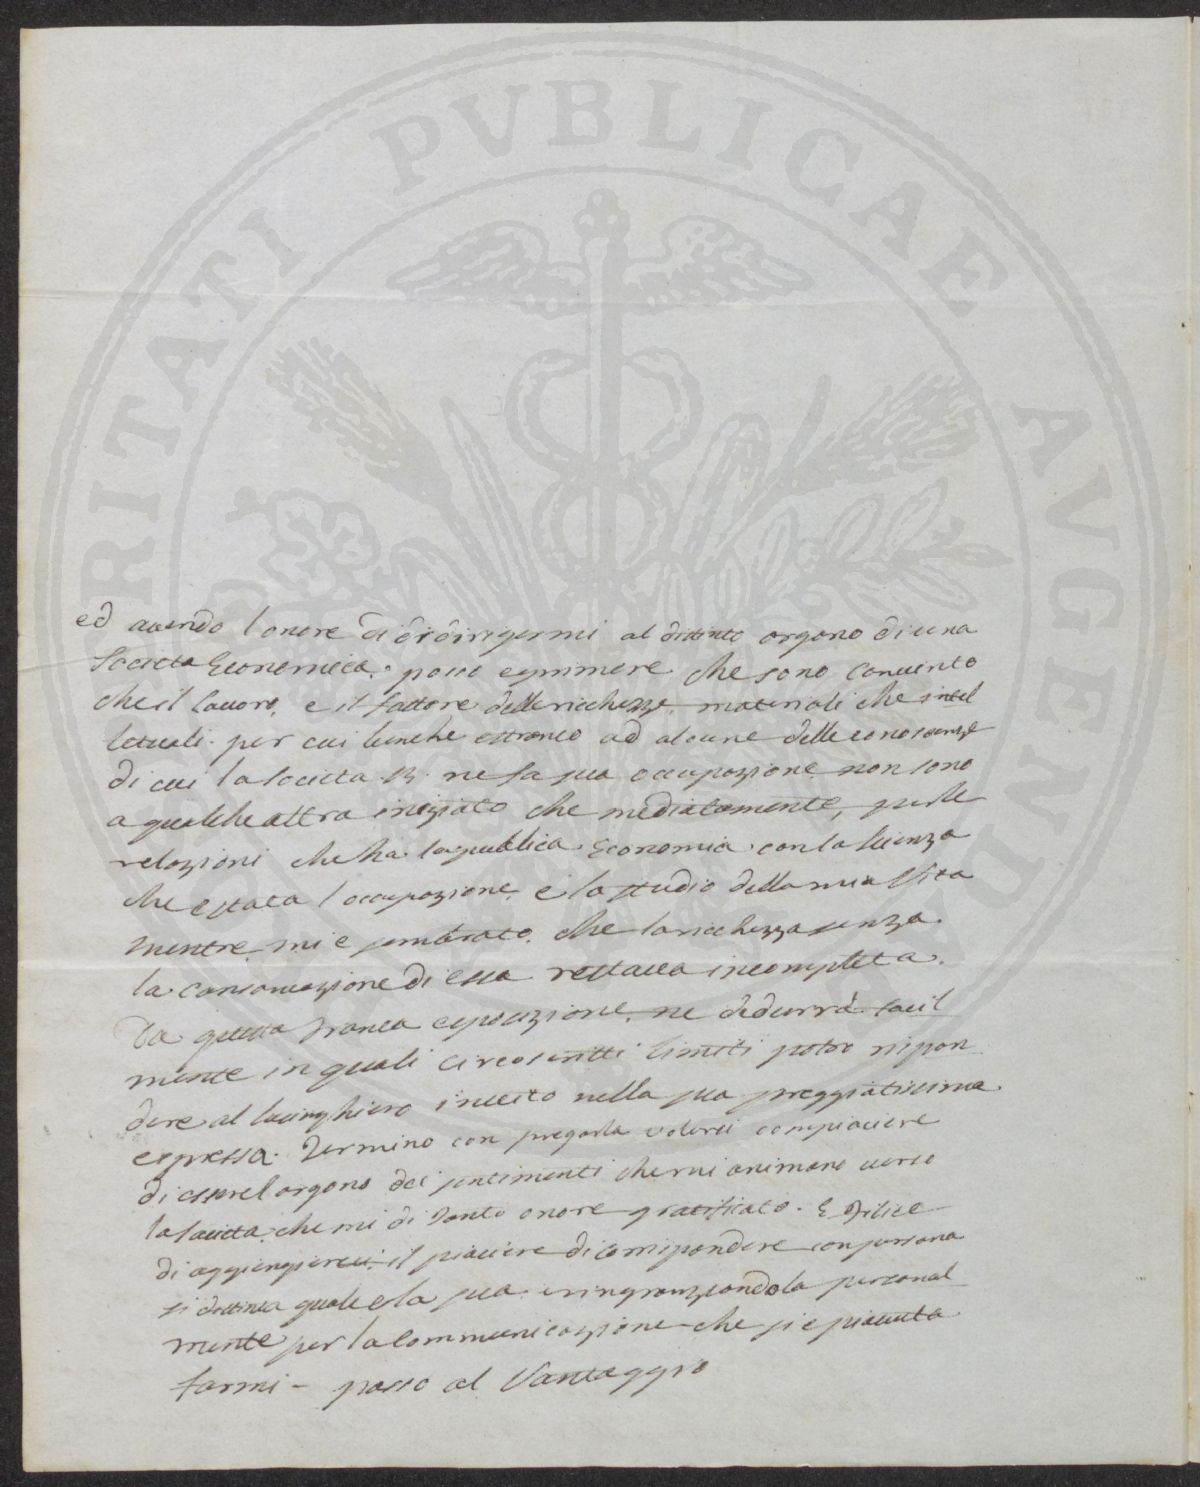 PVBLICAE AVGENDAE
RITATI
ed avendo l onore di dirigermi al distinto organo di una
Societa Economica. posso esprimere che sono convinto
che il lavoro, e il fattore delle ricchezze materiali che intel
letuali. per cui benche estraneo ad alcune delle conoscenze
di cui la societta ne fa sua occupazione non sono
a qualche altra iniziato che mediatamente, per le
relazioni che ha la publica Economia con la scienza
che e stata l occupazione e lo studio della mia vita
mentre mi e sembrato che la ricchezza senza
la conservazione di essa restava incompleta.
Da questa franca esposizione ne dedurrá facil
mente in quali circoscritti limiti potro rispon
dere al lusinghiero invito nella sua preggiatissima
espressa. Termino con pregarla volersi compiacere
di essere l organo dei sentimenti che mi animano verso
la societta che mi di tanto onore gratificato. E felice
di aggiungerci il piacere di corrispondere con persona
si distinta quale e la sua e ringranziandola personal
mente per la communicazione che si e piaciuta
farmi - passo al Vantaggio